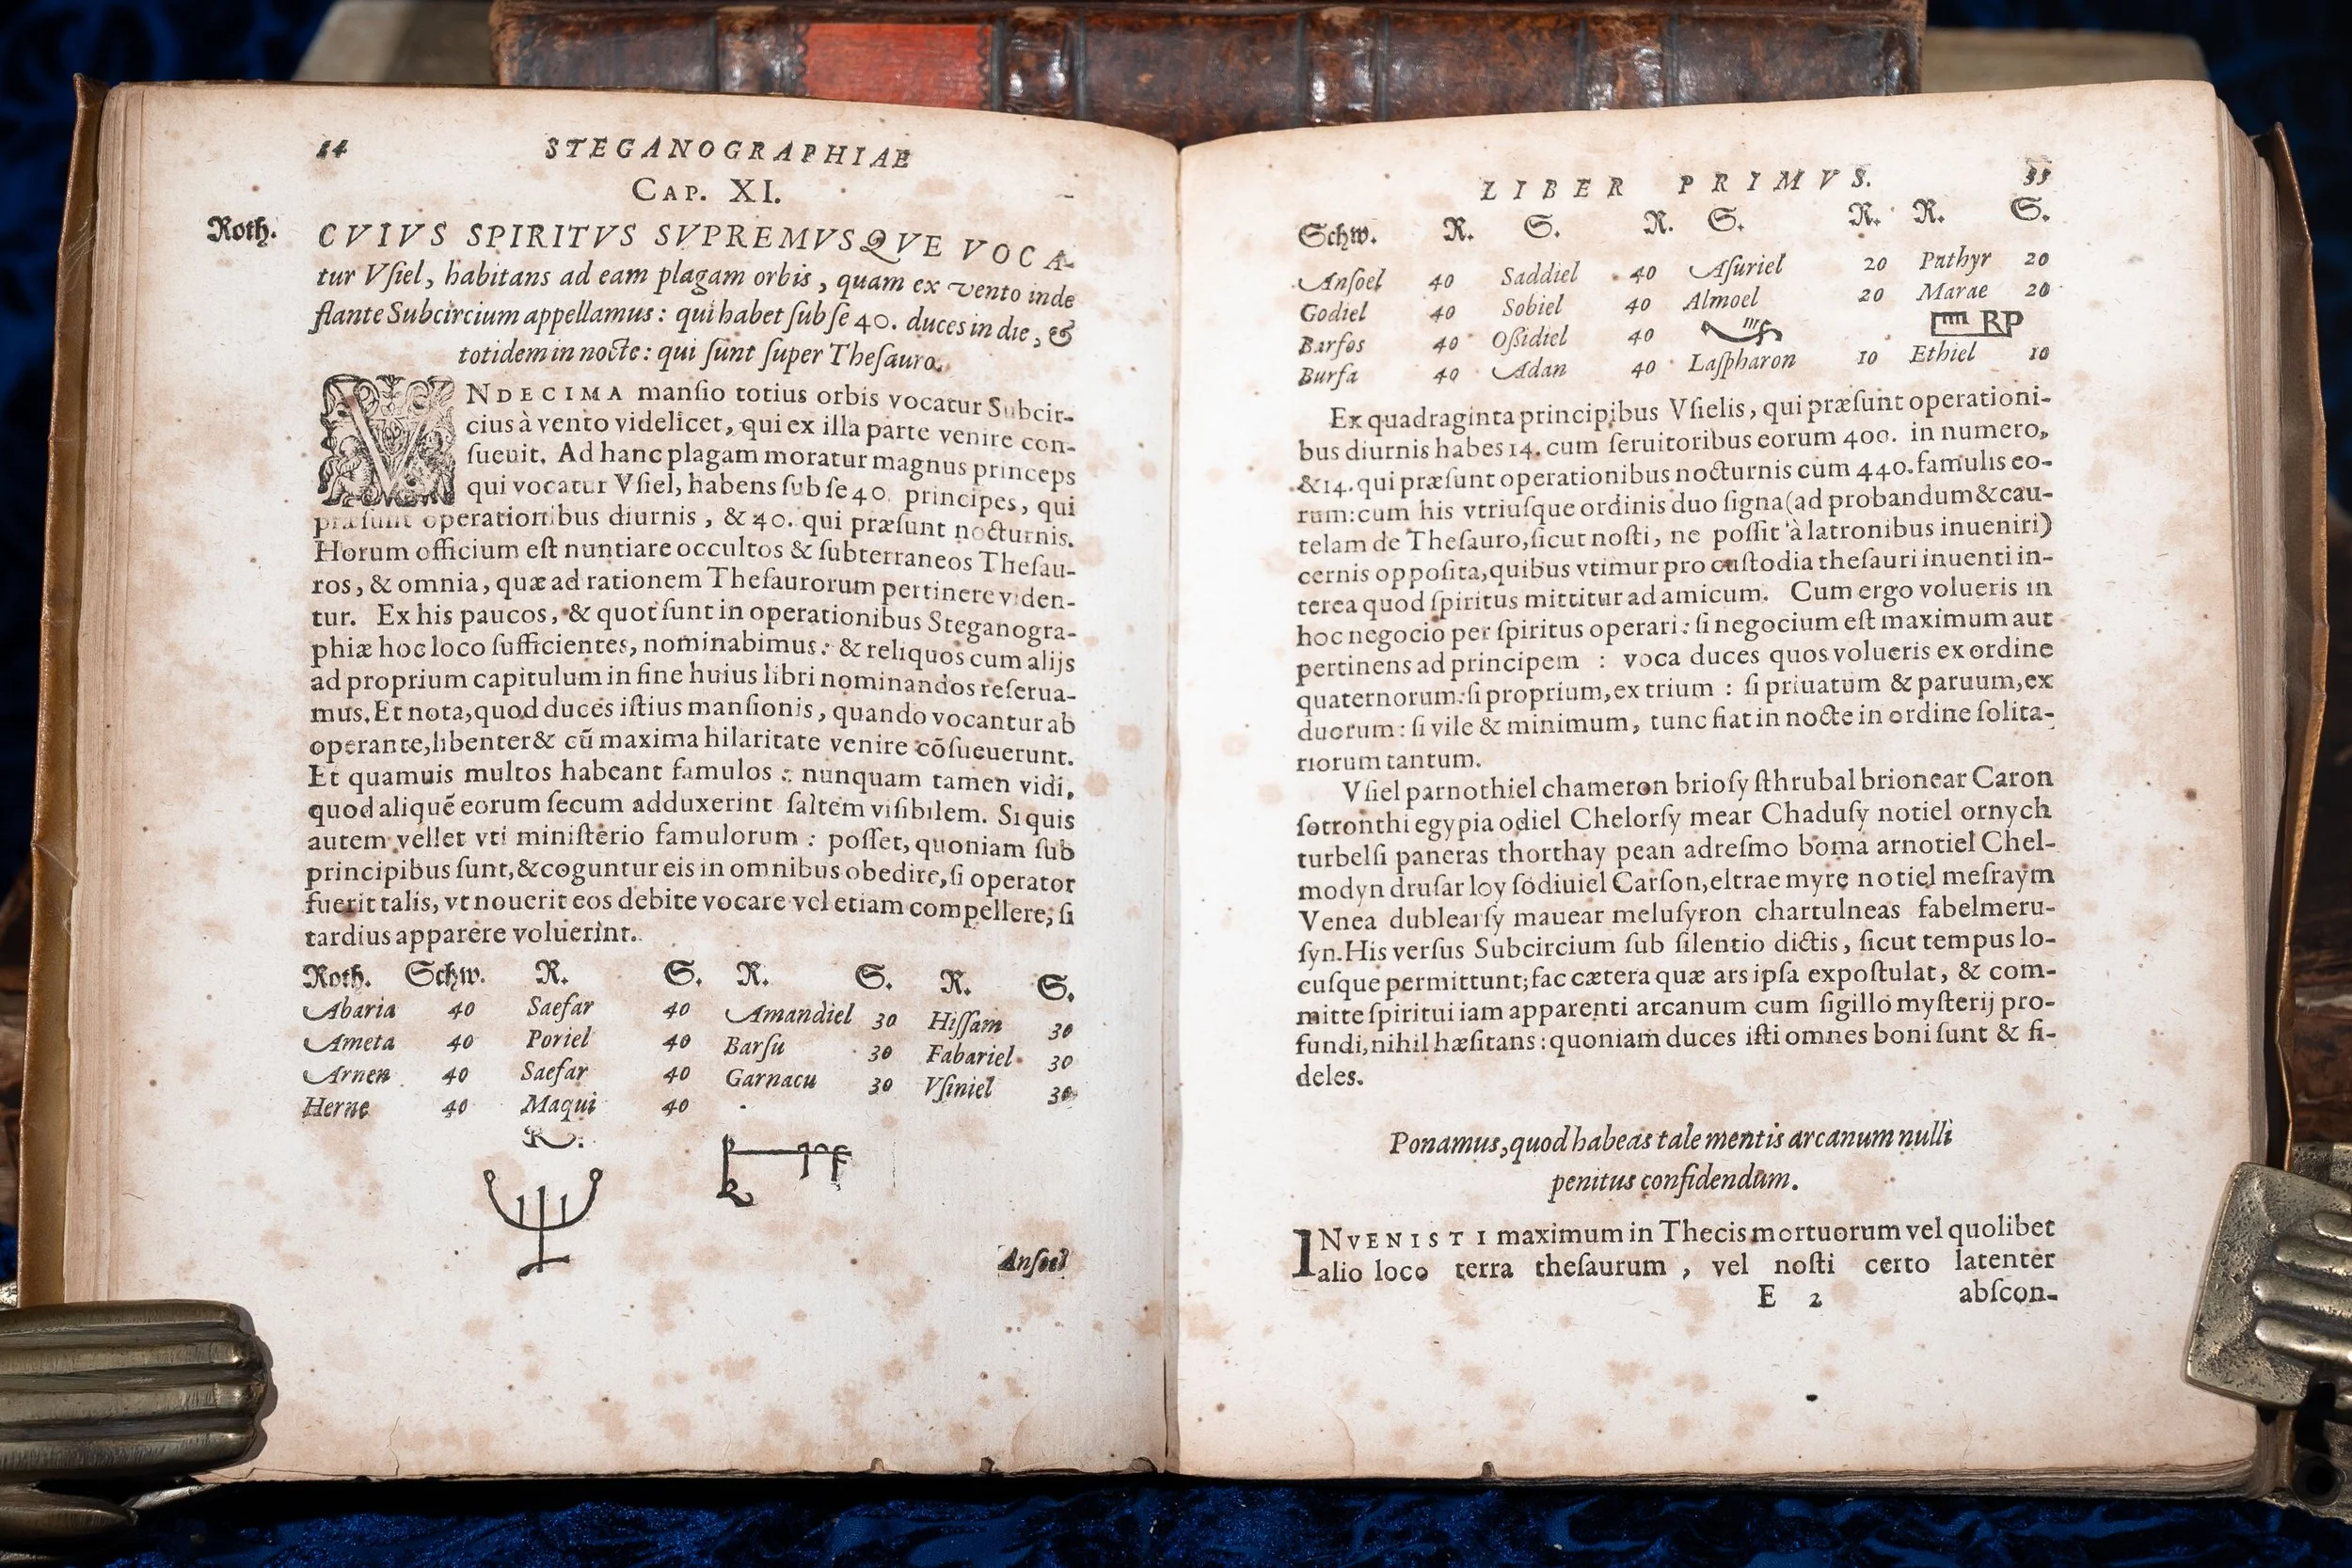 14 STEGANOGRAPHIAE
CAP. XI.
Roth.
CVIVS SPIRITVS SVPREMVSQVE VOCA-
tur Vſiel, habitans ad eam plagam orbis, quam ex vento inde
flante Subcircium appellamus: qui habet ſub ſe 40. duces in die, &
totidem in nocte: qui ſunt ſuper Theſauro.
VNDECIMA manſio totius orbis vocatur Subcir-
cius à vento videlicet, qui ex illa parte venire con-
ſueuit. Ad hanc plagam moratur magnus princeps
qui vocatur Vſiel, habens ſub ſe 40. principes, qui
præſunt operationibus diurnis, & 40. qui præſunt nocturnis.
Horum officium eſt nuntiare occultos & ſubterraneos Theſau-
ros, & omnia, quæ ad rationem Theſaurorum pertinere viden-
tur. Ex his paucos, & quot ſunt in operationibus Steganogra-
phiæ hoc loco ſufficientes, nominabimus: & reliquos cum alijs
ad proprium capitulum in fine huius libri nominandos reſerua-
mus. Et nota, quod duces iſtius manſionis, quando vocantur ab
operante, libenter & cū maxima hilaritate venire cōſueuerunt.
Et quamuis multos habeant famulos: nunquam tamen vidi,
quod aliquē eorum ſecum adduxerint ſaltem viſibilem. Si quis
autem vellet vti miniſterio famulorum: poſſet, quoniam ſub
principibus ſunt, & coguntur eis in omnibus obedire, ſi operator
fuerit talis, vt nouerit eos debite vocare vel etiam compellere, ſi
tardius apparere voluerint.
Roth. Schw. R. S. R. S. R. S.
Abaria 40 Saefar 40 Amandiel 30 Hiſſam 30
Ameta 40 Poriel 40 Barſu 30 Fabariel 30
Arnen 40 Saefar 40 Garnacu 30 Vſiniel 30
Herne 40 Maqui 40
R.
Anſoel
LIBER PRIMVS. 35
Schw. R. S. R. S. R. R. S.
Anſoel 40 Saddiel 40 Aſuriel 20 Pathyr 20
Godiel 40 Sobiel 40 Almoel 20 Marae 20
Barfos 40 Oſſidiel 40 RP
Burfa 40 Adan 40 Laſpharon 10 Ethiel 10
Ex quadraginta principibus Vſielis, qui præſunt operationi-
bus diurnis habes 14. cum ſeruitoribus eorum 400. in numero,
& 14. qui præſunt operationibus nocturnis cum 440. famulis eo-
rum: cum his vtriuſque ordinis duo ſigna (ad probandum & cau-
telam de Theſauro, ſicut noſti, ne poſſit à latronibus inueniri)
cernis oppoſita, quibus vtimur pro cuſtodia theſauri inuenti in-
terea quod ſpiritus mittitur ad amicum. Cum ergo volueris in
hoc negocio per ſpiritus operari: ſi negocium eſt maximum aut
pertinens ad principem : voca duces quos volueris ex ordine
quaternorum: ſi proprium, ex trium : ſi priuatum & paruum, ex
duorum: ſi vile & minimum, tunc fiat in nocte in ordine ſolita-
riorum tantum.
Vſiel parnothiel chameron brioſy ſthrubal brionear Caron
ſotronthi egypia odiel Chelorſy mear Chaduſy notiel ornych
turbelſi paneras thorthay pean adreſmo boma arnotiel Chel-
modyn druſar loy ſodiuiel Carſon, eltrae myre notiel meſraym
Venea dublearſy mauear meluſyron chartulneas fabelmeru-
ſyn. His verſus Subcircium ſub ſilentio dictis, ſicut tempus lo-
cuſque permittunt; fac cætera quæ ars ipſa expoſtulat, & com-
mitte ſpiritui iam apparenti arcanum cum ſigillo myſterij pro-
fundi, nihil hæſitans: quoniam duces iſti omnes boni ſunt & fi-
deles.
Ponamus, quod habeas tale mentis arcanum nulli
penitus confidendum.
INVENISTI maximum in Thecis mortuorum vel quolibet
alio loco terra theſaurum, vel noſti certo latenter
E 2 abſcon-